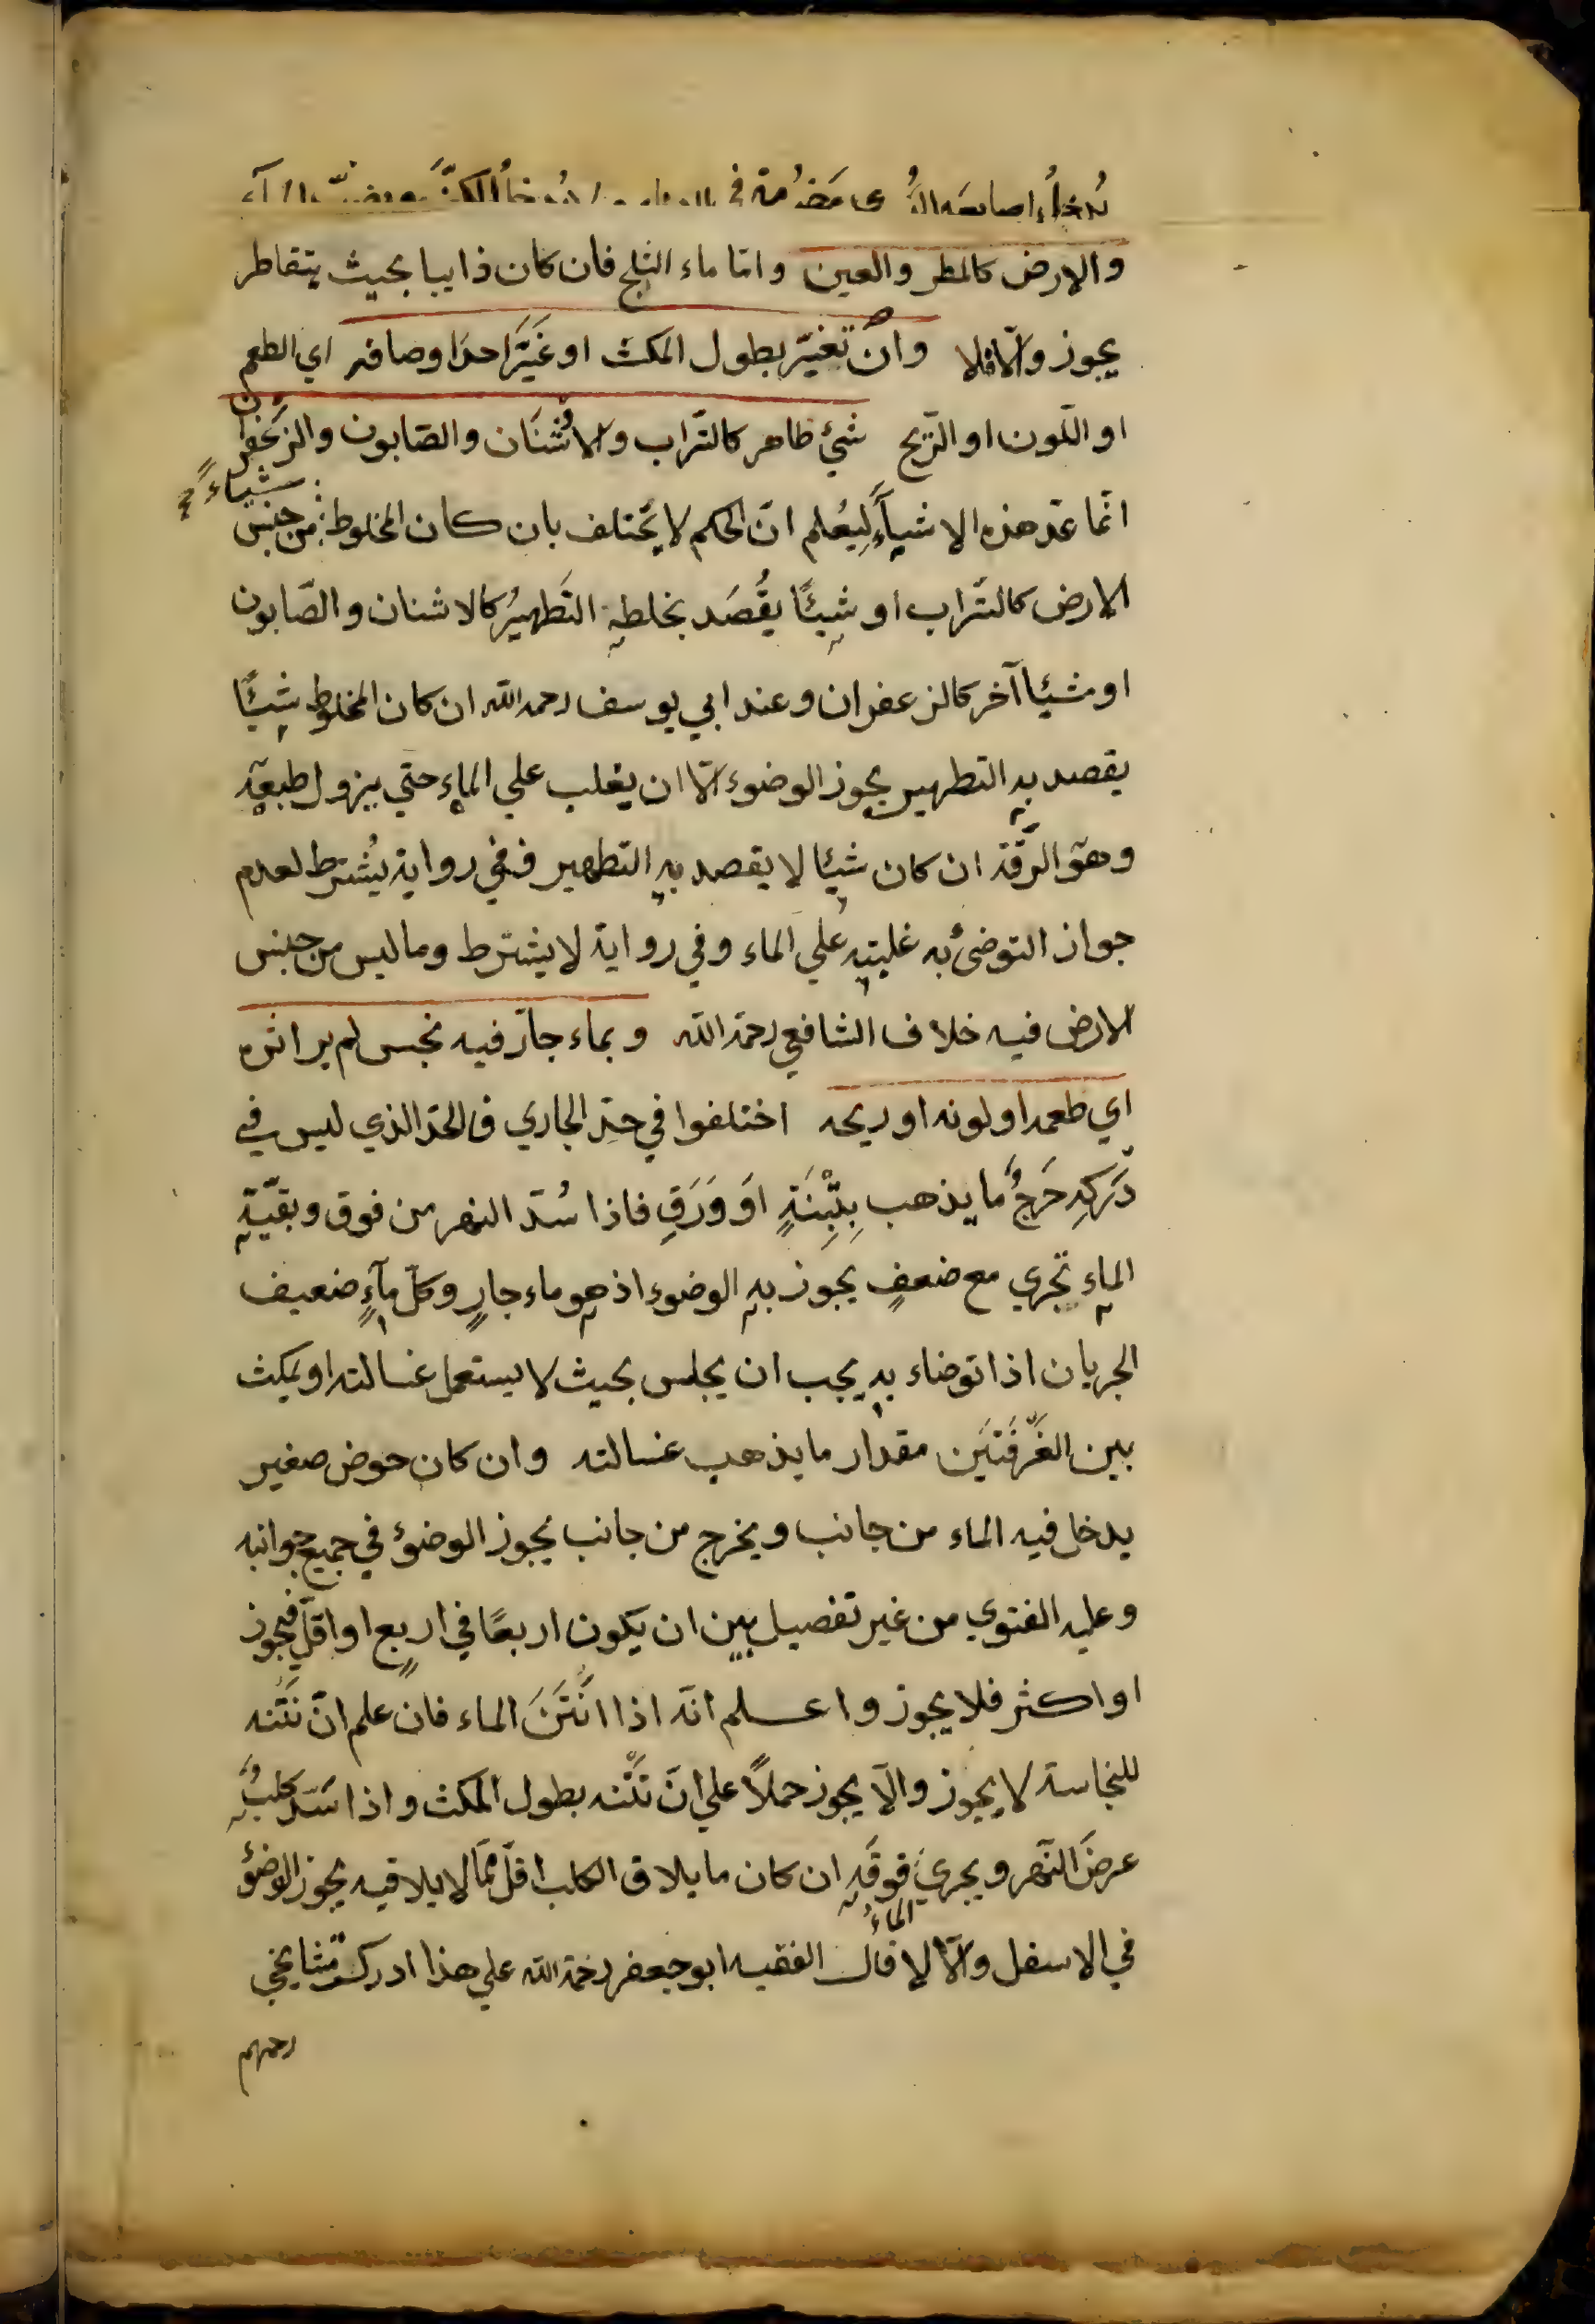 يُدخلُ اصابعَ مَضمُومة في ولا يُدخلُ الكفَّ
والارض كالمطر والعين وامّا ماء الثلج فان كان ذايبا بحيث يتقاطر
يجوز والّا فلا وانْ تغيّر بطول المكث او غَيَّرَ احدَ اوصافه اي الطعم
او اللّون او الرّيح شيْ طاهر كالتّراب والاشْنَان والصّابون والزعفران
انّما عدّ هذه الاشياءَ لِيُعلم انّ الحكم لا يختلف بان كان المخلوط شياءً من جنس
الارض كالتّراب او شيئًا يقُصَد بخلطهِ التَطهيرُ كالاشنان والصّابون
او شيئا آخر كالزعفران وعند ابي يوسف رحمه الله ان كان المخلوط شيئًا
يقصد بهِ التطهير يجوز الوضوء الّا ان يغلب علي الماءِ حتي يزول طبعهِ
وهو الرّقّة ان كان شيئا لا يقصد بهِ التطهير ففي رواية يُشترط لعدم
جواز التوضئ به غلبتهِ علي الماء وفي رواية لا يشترط وما ليس من جنس
الارض فيه خلاف الشافعي رحمة الله وبماء جارٍ فيه نجس لم ير اثره
اي طعمه او لونه او ريحه اختلفوا في حدّ الجاري فالحدّ الذي ليس في
دَركهِ حَرَجٌ ما يذهب بِتِبْنَةٍ اوَ وَرَقٍ فاذا سُدّ النهر من فوق وبقيّةِ
الماءِ تجري مع ضعفٍ يجوز بهِ الوضوء اذ هو ماء جارٍ وكلّ مآءٍ ضعيف
الجريان اذا توضاء بهِ يجب ان يجلس بحيث لا يستعمل غسالته او يمكث
بين الغَرْفَتَين مقدار ما يذهب غسالته وان كان حوض صغير
يدخل فيه الماء من جانب ويخرج من جانب يجوز الوضؤ في جميع جوانبه
وعليه الفتوي من غير تفصيل بين ان يكون اربعًا في اربعٍ او اقلّ فيجوز
او اكثر فلا يجوز واعلم انّه اذا انْتَنَ الماء فان علم انّ نَتْنه
للنجاسة لا يجوز والّا يجوز حملاً علي انّ نَتْنه بطول المكث واذا سَدّ كلبٌ
عرضَ النّهر ويجري الماءُ فوقَهِ ان كان ما يلاقي الكلب اقلّ ممّا لا يلاقيه يجوز الوضؤ
في الاسفل والّا لا قال الفقيه ابو جعفر رحمة الله علي هذا ادركت مشايخي
رحمهم